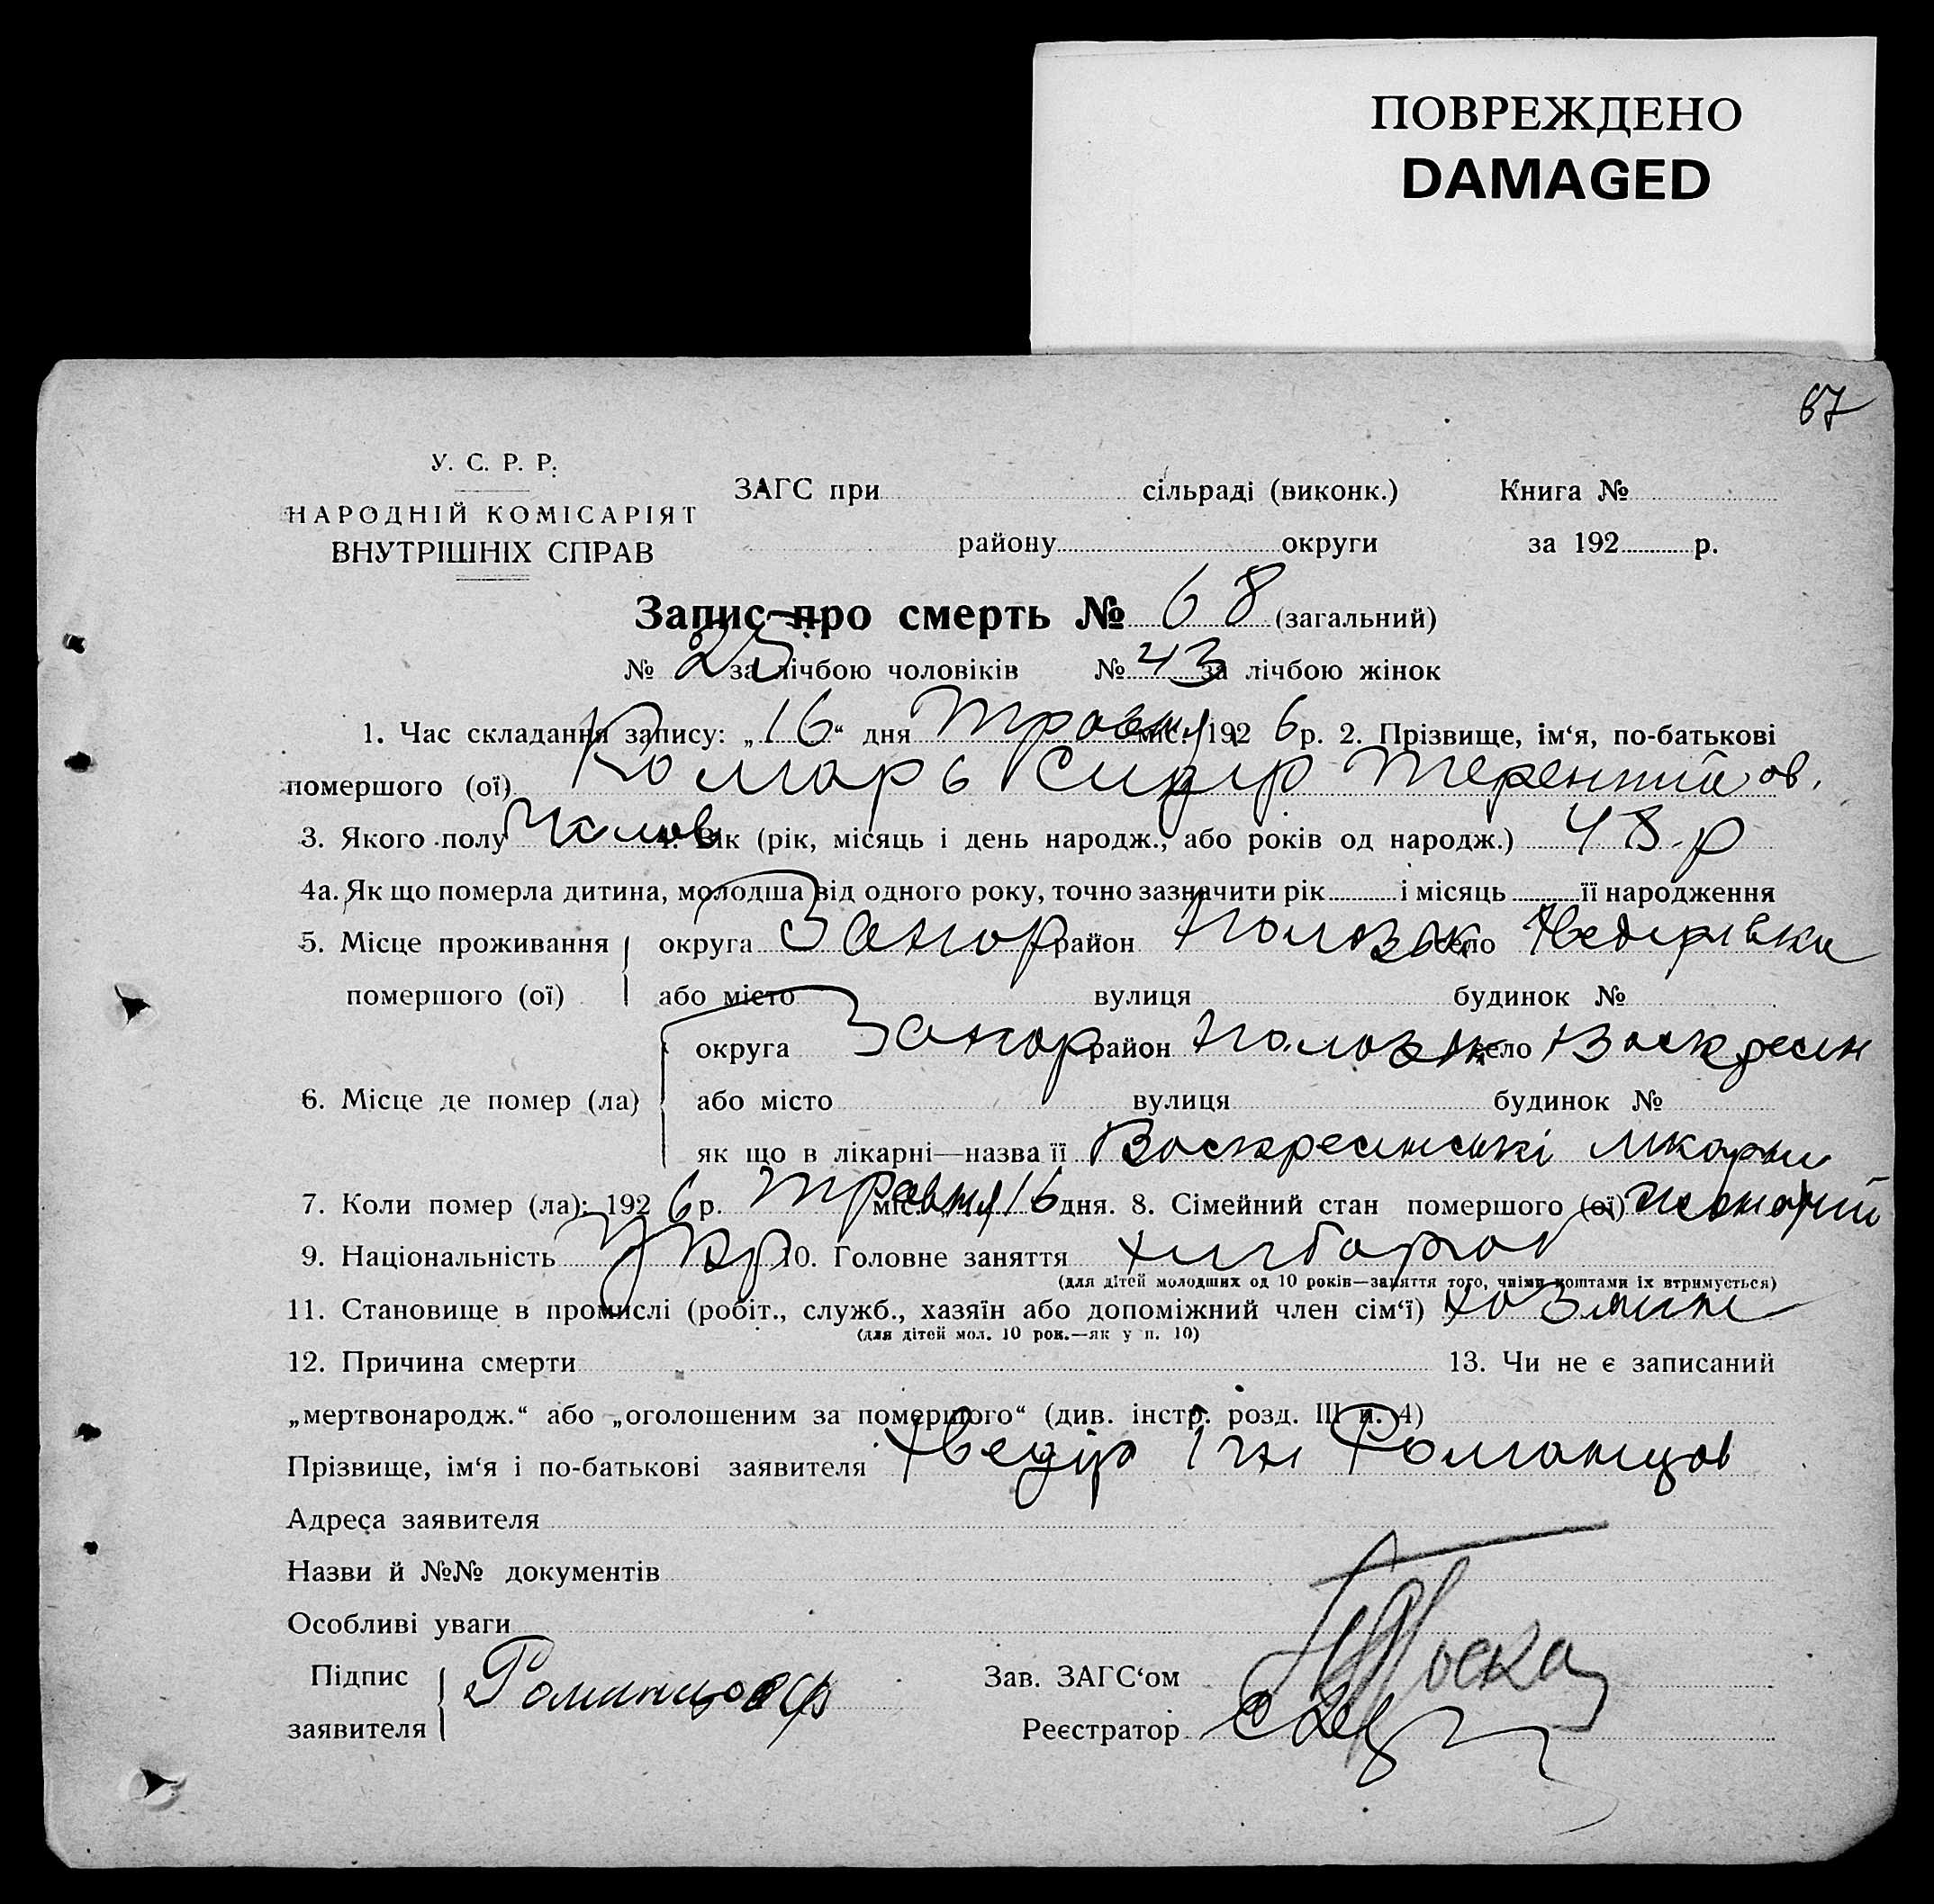 ПОВРЕЖДЕНО
DAMAGED
67
У. С. Р. Р.
НАРОДНІЙ КОМІСАРІЯТ
ВНУТРІШНІХ СПРАВ
ЗАГС при сільраді (виконк.) Книга №
району округи за 192 р.
Запис про смерть № 68 (загальний)
№ 25 за лічбою чоловіків № 43 за лічбою жінок
1. Час складання запису: „16“ дня Травня міс. 192 6 р. 2. Прізвище, ім‘я, по-батькові
помершого (ої) Комарь Сидір Терентійов.
3. Якого полу Чолов 4. Вік (рік, місяць і день народж., або років од народж.) 48 р
4а. Як що померла дитина, молодша від одного року, точно зазначити рік і місяць її народження
5. Місце проживання округа Запор район Пологівк село Федирівка
помершого (ої) або місто вулиця будинок №
округа Запор район село Воскресен
6. Місце де помер (ла) або місто вулиця будинок №
як що в лікарні—назва її Воскресенські лікарни
7. Коли помер (ла): 192 6 р. Травня міс. 16 дня. 8. Сімейний стан помершого (ої) жонатий
9. Національність Укр 10. Головне заняття хлібороб
(для дітей молодших од 10 років—заняття того, чиїми коштами їх втримується)
11. Становище в промислі (робіт., служб., хазяїн або допоміжний член сім‘ї)
(для дітей мол. 10 рок.—як у п. 10)
12. Причина смерти 13. Чи не є записаний
„мертвонародж.“ або „оголошеним за помершого“ (див. інстр. розд. III п. 4)
Прізвище, ім‘я і по-батькові заявителя Хведір Ігн Романцов
Адреса заявителя
Назви й №№ документів
Особливі уваги
Підпис заявителя Романцов Ф
Зав. ЗАГС‘ом
Реєстратор